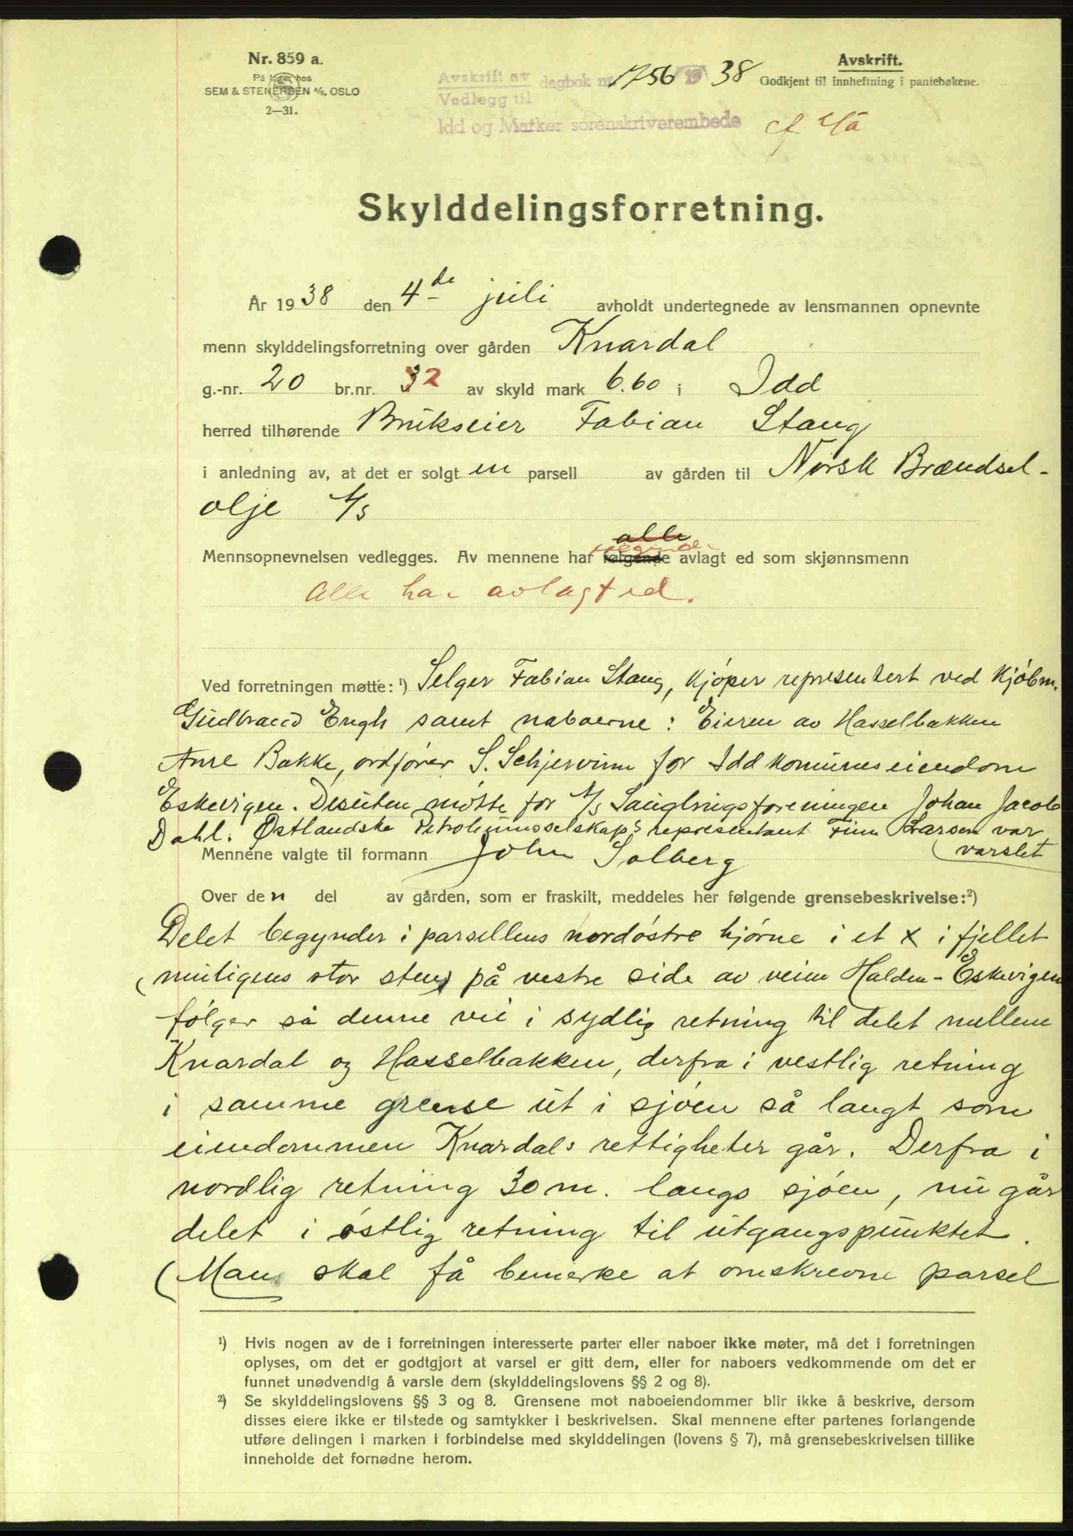 Nr. 859 a.
På lager hos
SEM & STENERSEN A/S, OSLO
2—31.
Avskrift av
Vedlegg til
dagbok nr. 1756 19 38
Idd og Marker sorenskriverembede
Avskrift.
Godkjent til innheftning i pantebøkene.
Skylddelingsforretning.
År 1938 den 4de juli avholdt undertegnede av lensmannen opnevnte
menn skylddelingsforretning over gården Knardal
g.-nr. 20 br.nr. 32 av skyld mark 6.60 i Idd
herred tilhørende Brukseier Fabian Stang
i anledning av, at det er solgt en parsell av gården til Norsk Brændsel-
olje A/S
alle
Mennsopnevnelsen vedlegges. Av mennene har følgende avlagt ed som skjønnsmenn
Alle har avlagt ed.
Ved forretningen møtte: ¹) Selger Fabian Stang, kjøper representert ved Kjøbm.
Gudbrand Engh samt naboerne: Eieren av Hasselbakken
Bakke, ordfører S. Schjervinn for Idd komunes eiendom
Eskevigen. Desuten møtte for A/S Saugbrugsforeningen Johan Jacob
Dahl. Østlandske Petroleumsselskap's representant Finn Larsen var
varslet
Mennene valgte til formann John Solberg
Over den del av gården, som er fraskilt, meddeles her følgende grensebeskrivelse:²)
Delet begynder i parsellens nordøstre hjørne i et x i fjellet
(muligens stor sten) på vestre side av veien Halden - Eskevigen
følger så denne vei i sydlig retning til delet mellem
Knardal og Hasselbakken, derfra i vestlig retning
i samme grense ut i sjøen så langt som
eiendommen Knardals rettigheter går. Derfra i
nordlig retning 30 m. langs sjøen, nu går
delet i østlig retning til utgangspunktet.
(Man skal få bemerke at omskrevne parsel
¹) Hvis nogen av de i forretningen interesserte parter eller naboer ikke møter, må det i forretningen
oplyses, om det er godtgjort at varsel er gitt dem, eller for naboers vedkommende om det er
funnet unødvendig å varsle dem (skylddelingslovens §§ 2 og 8).
²) Se skylddelingslovens §§ 3 og 8. Grensene mot naboeiendommer blir ikke å beskrive, dersom
disses eiere ikke er tilstede og samtykker i beskrivelsen. Skal mennene efter partenes forlangende
utføre delingen i marken i forbindelse med skylddelingen (lovens § 7), må grensebeskrivelsen tillike
inneholde det fornødne herom.